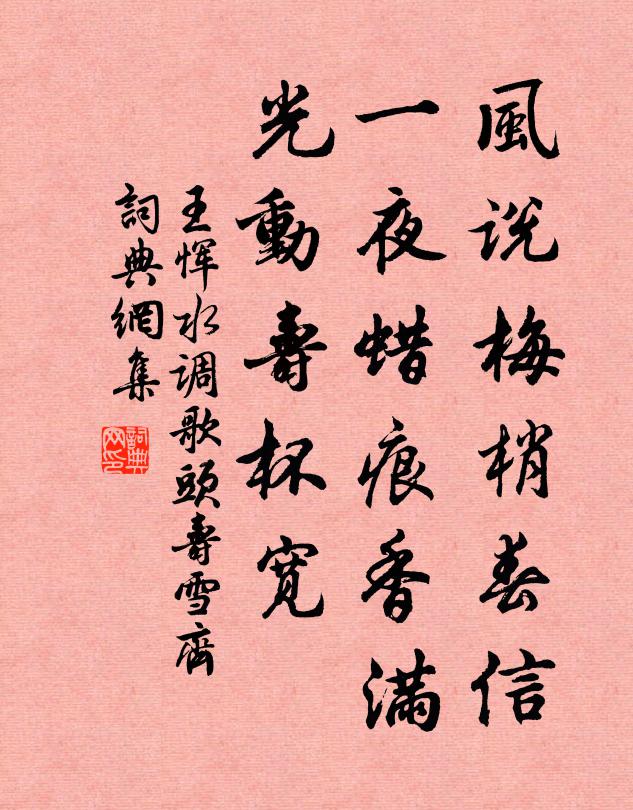 風说梅梢春信
一夜蜡痕香满
光動壽杯寬
王恽水调歌頭壽雪齋
詞典網集
詞典
网印